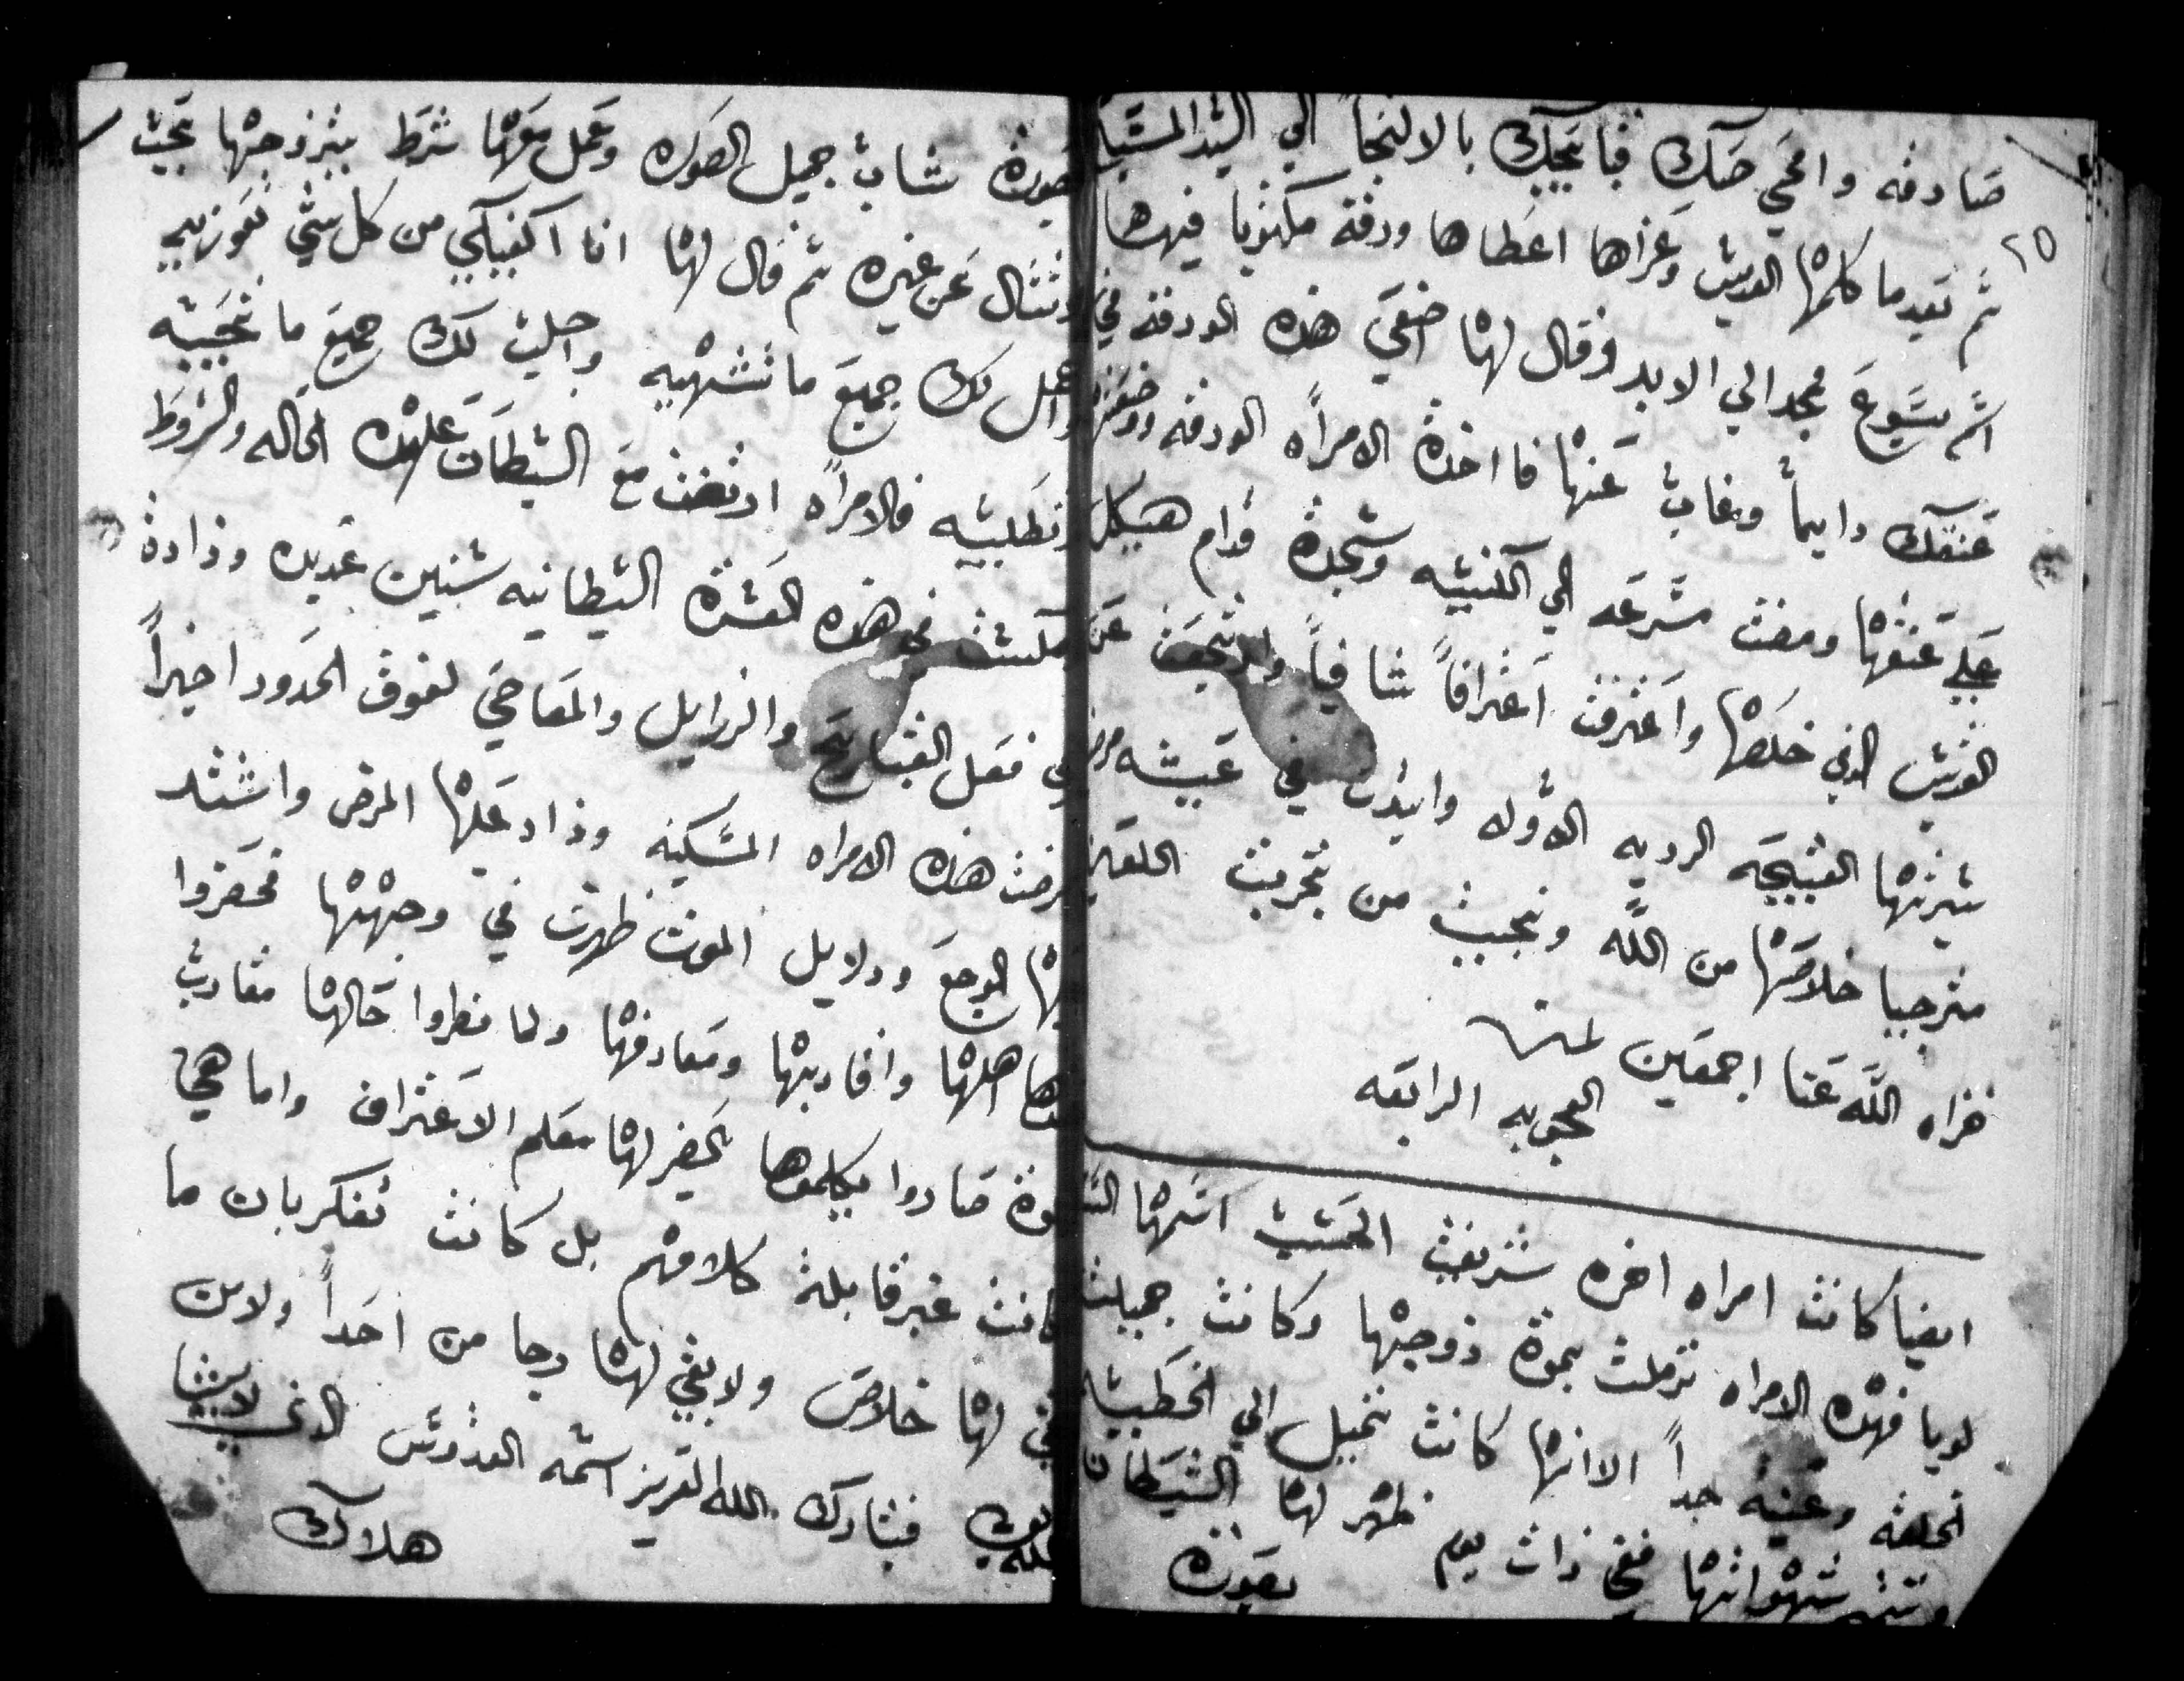 صادقه وامحي حتك فما يجيبك بالالتجا الي السيد المسيح
٢٥
ثم بعدما كلمها القديس وعزاها اعطاها ورقة مكتوبا فيها
اسم يسوع مجد الي الابد وقال لها اضعي هذه الورقه في
عنقك دايماً وغاب عنها فا اخذة الامراه الورقه ووضعتها
علي عنقها ومضت مسرعه الي الكنيسه وسجدة قدام هيكل
القديس الذي خلصها واعترفت اعترافاً شافياً وارتجعت عن
سيرتها القبيحه الرديه الاوله وابتدت في عيشه
مترجيا خلاصها من الله ونجيت من تجربت
خزاه الله عنا اجمعين
العجوبه الرابعه
ايضا كانت امراه اخره شريفت الحسب اسمها
لويا فهذه الامراه ترملت بموة زوجها وكانت جميلت
الخلقه وغنيه جداً الا انها كانت تميل الي الخطيه
شهواتها ففي ذات يوم ظهر لها الشيطان
بصورة
صورة شاب جميل الصوره وعمل معها شرط بيتزوجها بحيث
تسال عن غيره ثم قال لها انا اكفيكي من كل شي تعوزيه
واعمل لك جميع ما تشتهيه واجلب لك جميع ما تحبيه
وتطلبيه فالامراه ارتضت مع الشيطان علهذه الحاله والشروط
مكست في هذه العشرة الشيطانيه سنين عديده وزادة
في فعل القبايح والرزايل والمعاصي لفوق الحدود اخيراً
مرضت هذه الامراه المسكينه وزاد عليها المرض واشتد
بها الوجع ودلايل الموت ظهرت في وجهها فحضروا
اهلها واقاربها ومعارفها ولما نظروا حالها مقارب
موة صاروا يكلموها يحضر لها معلم الاعتراف واما هي
كانت غير قابلة كلامهم بل كانت تفكر بان ما
بقي لها خلاص ولا بقي لها رجا من احداً ولا من
فتبارك الله العزيز اسمه القدوس الذي لا يشا
هلاك